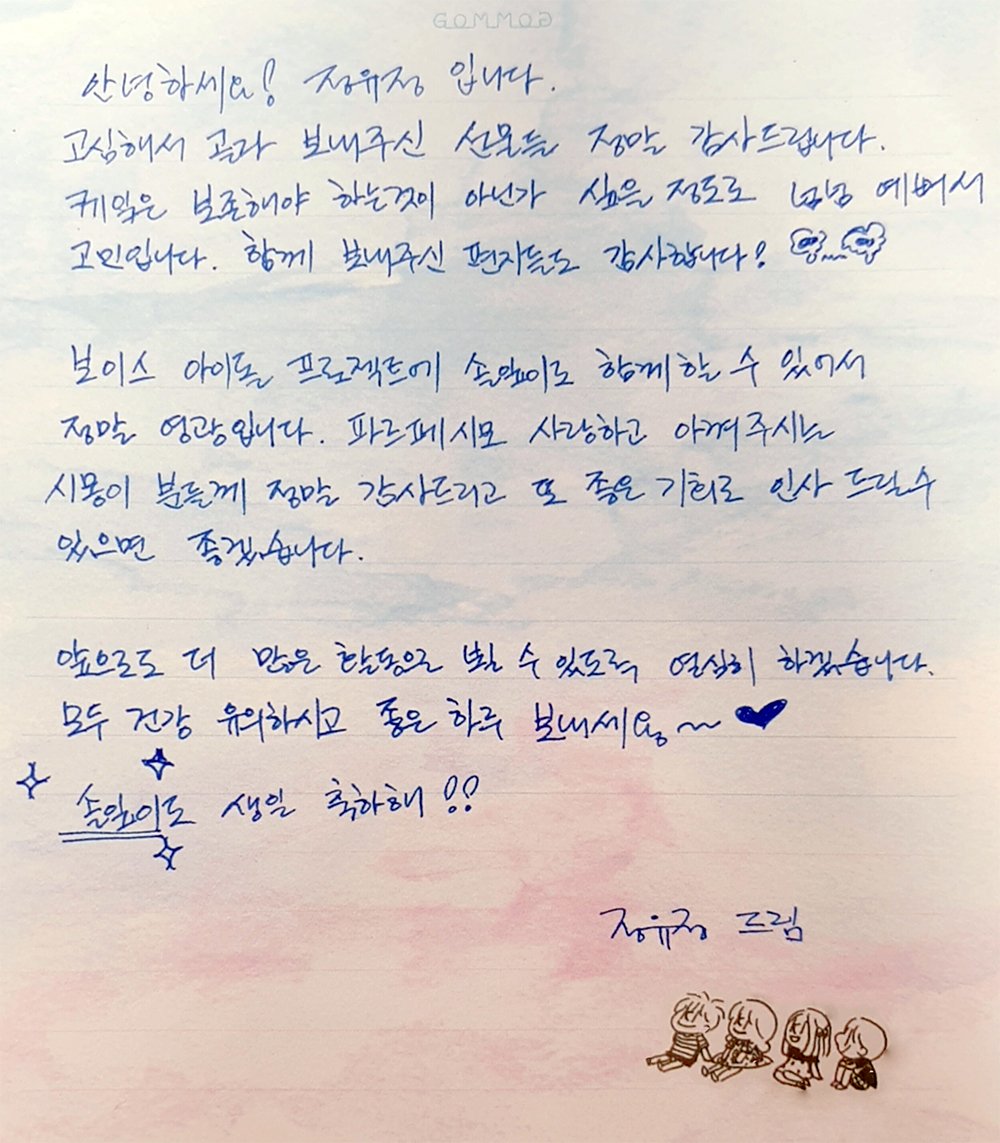 GOMMOG
안녕하세요! 정유정 입니다.
고심해서 골라 보내주신 선물들 정말 감사드립니다.
케잌은 보존해야 하는것이 아닌가 싶을 정도로 넘넘 예뻐서
고민입니다. 함께 보내주신 편지들도 감사합니다!
보이스 아이돌 프로젝트에 솔잎이로 함께할 수 있어서
정말 영광입니다. 파르페시모 사랑하고 아껴주시는
시몽이 분들께 정말 감사드리고 또 좋은 기회로 인사 드릴수
있으면 좋겠습니다.
앞으로도 더 많은 활동으로 뵐 수 있도록 열심히 하겠습니다.
모두 건강 유의하시고 좋은 하루 보내세요~
솔잎이도 생일 축하해!!
정유정 드림